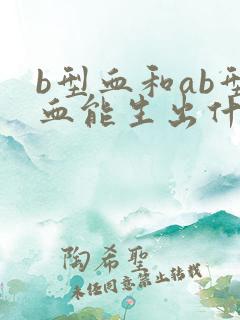 b型血和ab型
血能生出什
陶希聖
未经同意禁止转载